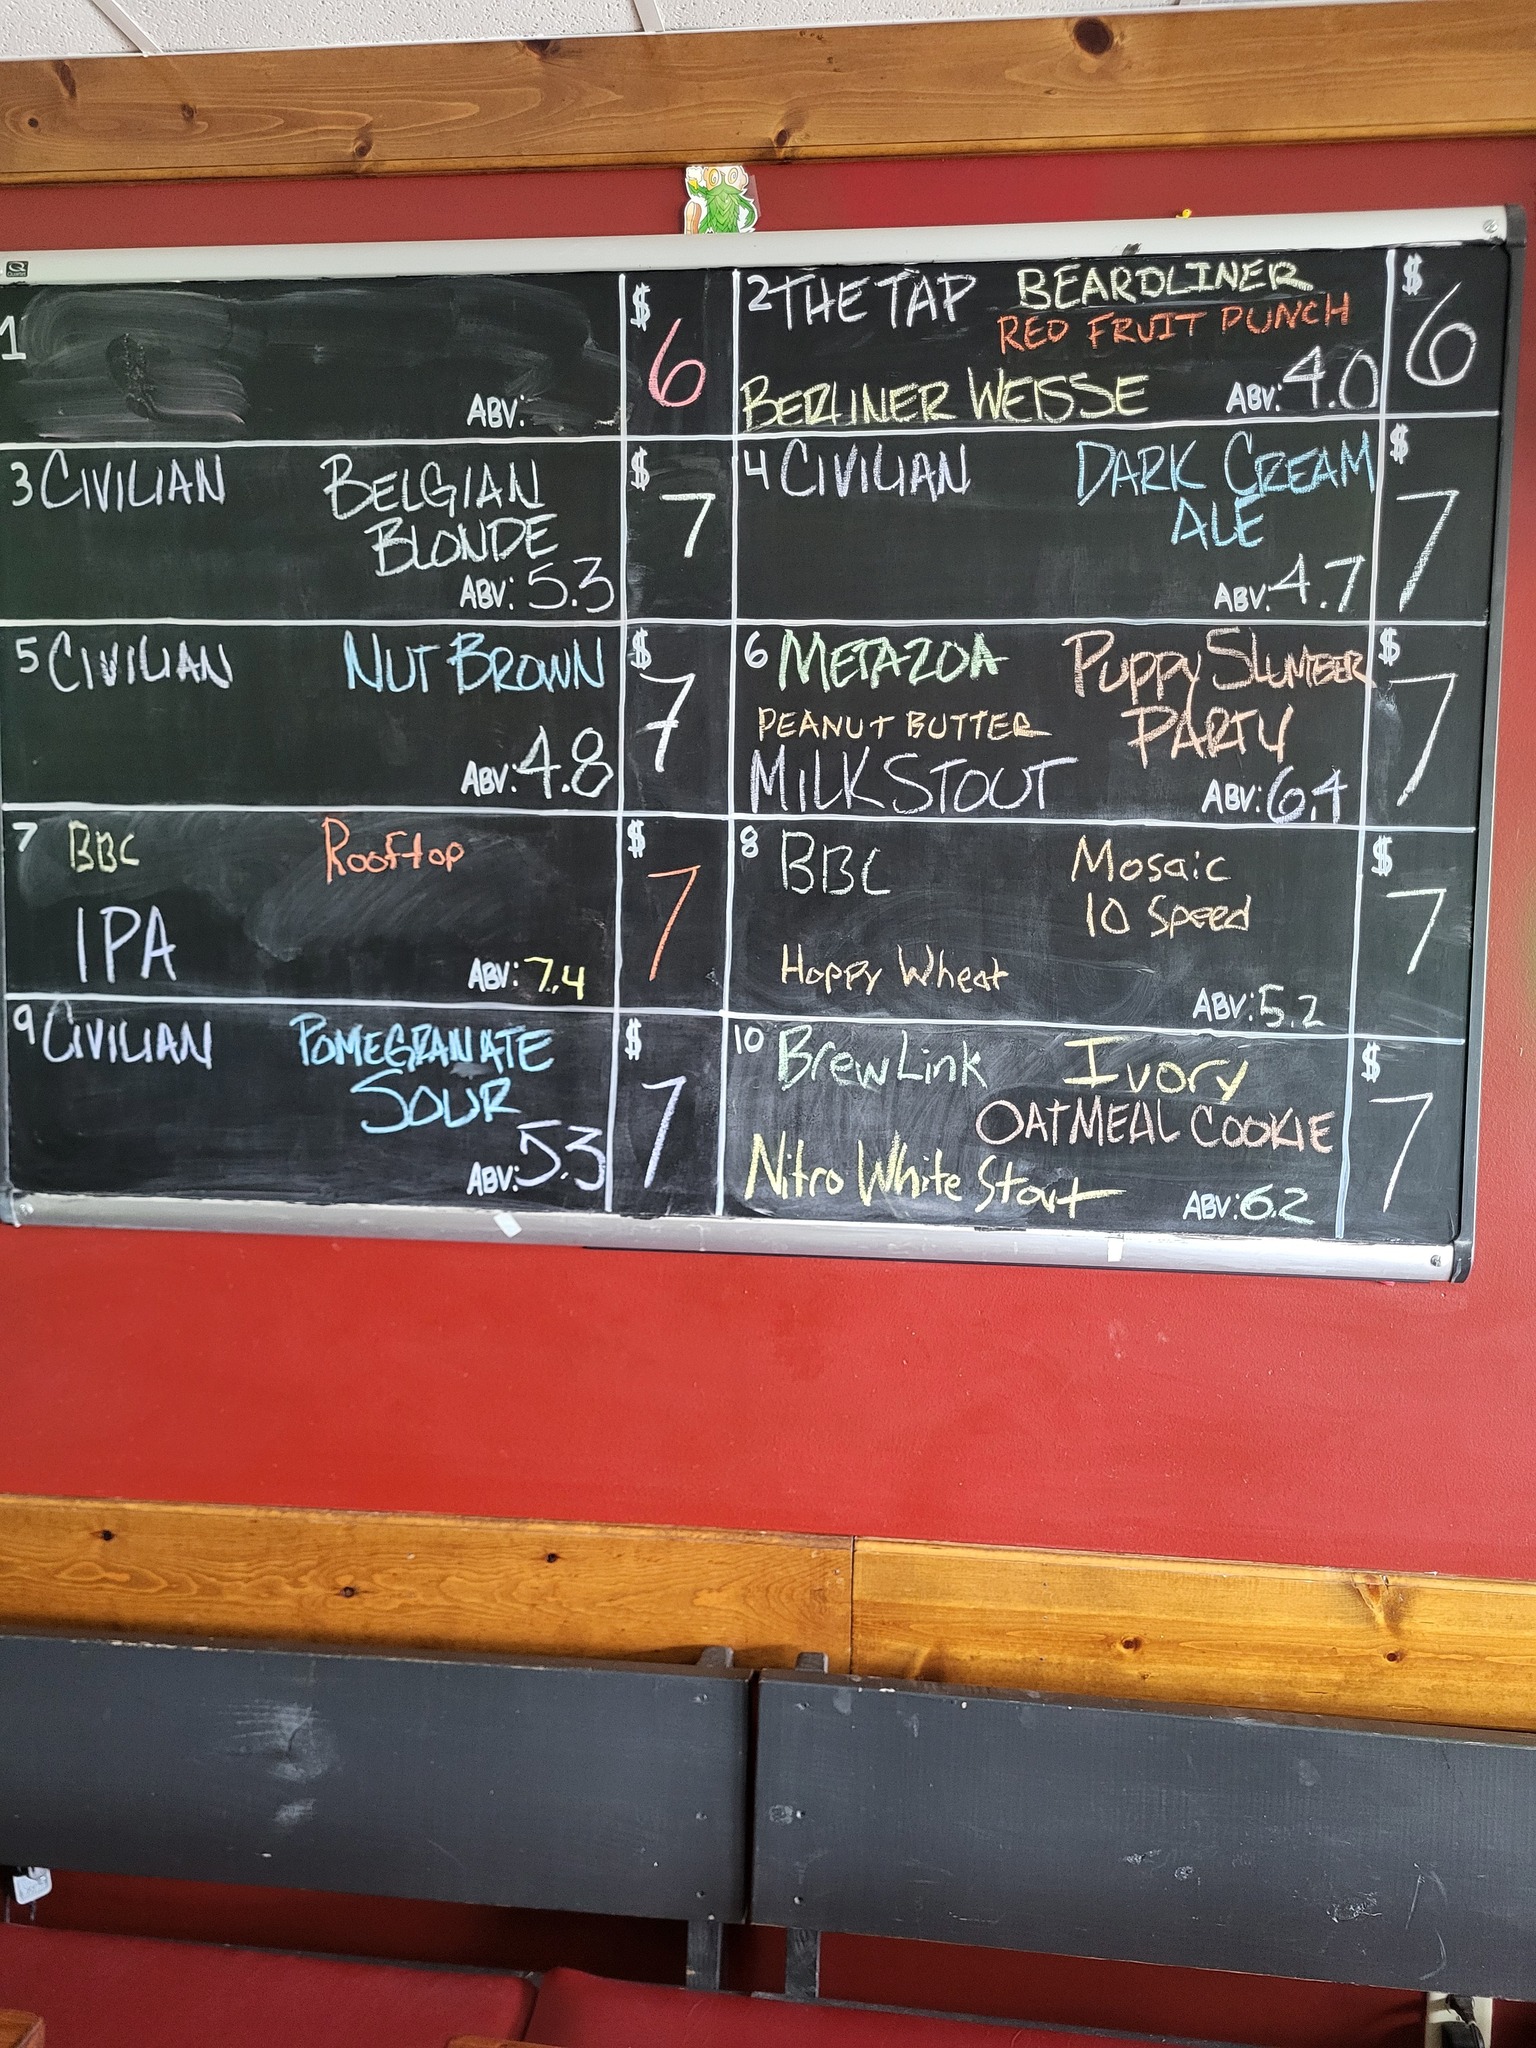 1
ABV:
$
6
2 THE TAP BEARDLINER
RED FRUIT PUNCH
BERLINER WEISSE ABV: 4.0
$
6
3 CIVILIAN BELGIAN
BLONDE
ABV: 5.3
$
7
4 CIVILIAN DARK CREAM
ALE
ABV: 4.7
$
7
5 CIVILIAN NUT BROWN
ABV: 4.8
$
7
6 METAZOA PUPPY SLUMBER
PEANUT BUTTER PARTY
MILK STOUT ABV: 6.4
$
7
7 BBC Rooftop
IPA ABV: 7.4
$
7
8 BBC Mosaic
10 Speed
Hoppy Wheat
ABV: 5.2
$
7
9 CIVILIAN POMEGRANATE
SOUR
ABV: 5.3
$
7
10 BrewLink Ivory
OATMEAL COOKIE
Nitro White Stout ABV: 6.2
$
7